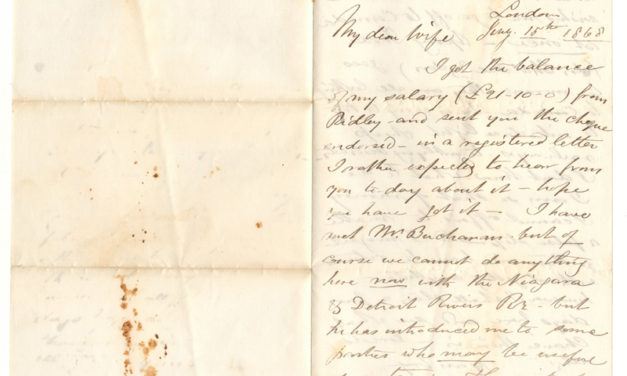 London
My dear Wife Augt. 15th 1868
I got the balance
of my salary (£21-10-0) from
Ridley - and sent you the cheque
endorsed - in a registered letter
I rather expected to hear from
you to-day about it - hope
you have got it - I have
met Mr. Buchanan but of
course we cannot do anything
here now with the Niagara
& Detroit Rivers RR - but
he has introduced me to some
parties who may be useful